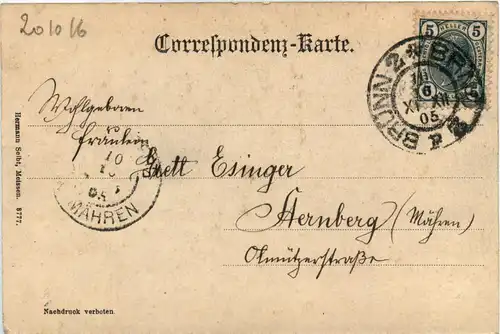 201016
Correspondenz-Karte.
5 5
BRÜNN 2 * BRNO
XII
05
Wohlgeboren
Fräulein
Grett Esinger
10
05
MÄHREN
Sternberg (Mähren)
Olmützerstraße
Hermann Seibt, Meissen. 8777.
Nachdruck verboten.